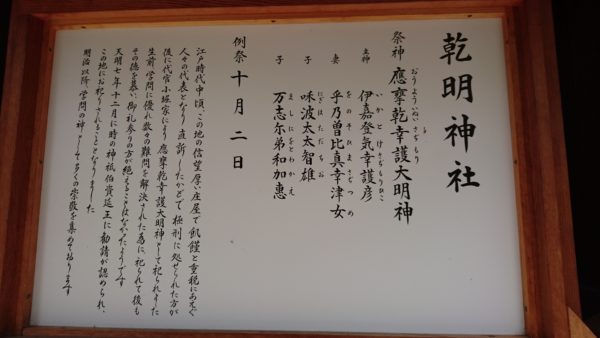 乾明神社
祭神 應擧乾幸護大明神
主神 伊嘉登気幸護彦
妻 乎乃曽比真幸津女
子 味波太太智雄
子 万志尓弟和加惠
例祭 十月二日
江戸時代中頃、この地の信望厚い庄屋で飢饉と重税にあえぐ
人々の代表となり直訴したかどで極刑に処せられた方が
後に代官小堀家により應擧乾幸護大明神として祀られました
生前学問に優れ数々の難問を解決された為に、祀られて後も
その徳を慕い、御礼参りの方が絶えることはなかったようです
天明七年十二月に時の神祇伯資延王に勧請が認められ、
この地にお祀りされることとなりました
明治以降学問の神として多くの崇敬を集めて拝ります